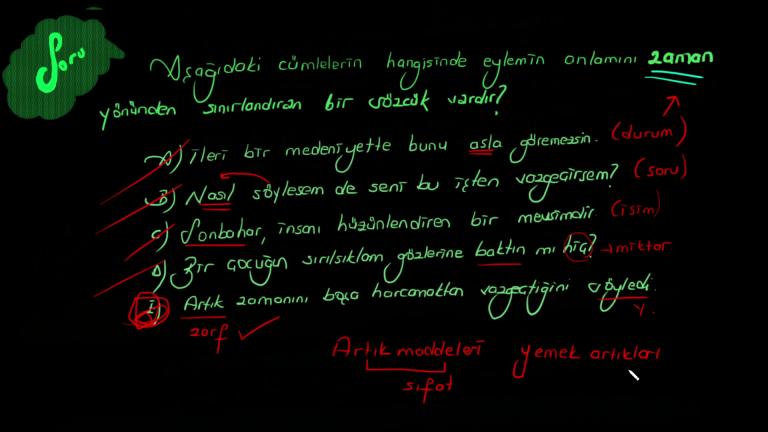 Soru
Aşağıdaki cümlelerin hangisinde eylemin anlamını zaman
yönünden sınırlandıran bir sözcük vardır?
A) İleri bir medeniyette bunu asla göremezsin. (durum)
B) Nasıl söylesem de seni bu işten vazgeçirsem? (soru)
C) Sonbahar, insanı hüzünlendiren bir mevsimdir. (isim)
D) Bir çocuğun sırılsıklam gözlerine baktın mı hiç? → miktar
E) Artık zamanını boşa harcamaktan vazgeçtiğini söyledi.
zarf ✓ Y.
Artık maddeleri yemek artıkları
sıfat